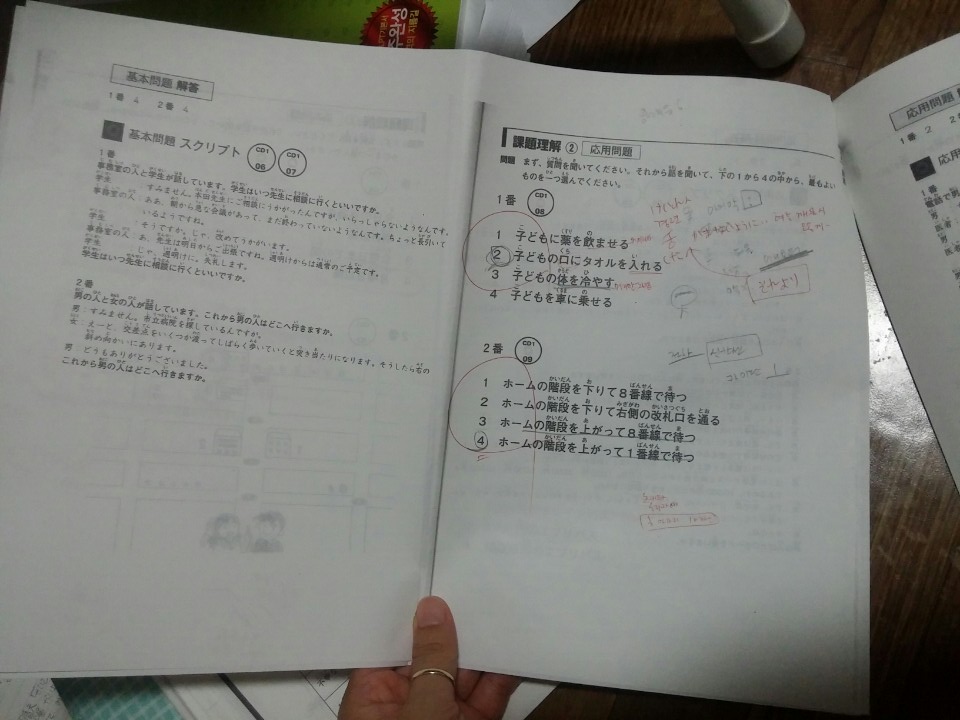 基本問題 解答
1番 4 2番 4
基本問題 スクリプト CD1 06 CD1 07
1番
事務室の人と学生が話しています。学生はいつ先生に相談に行くといいですか。
学生 : すみません。本田先生にご相談にうかがったんですが、いらっしゃらないようなんです。
事務室の人 : ああ、朝から急な会議があって、まだ終わっていないようなんです。ちょっと長引いて
いるようですね。
学生 : そうですか。じゃ、改めてうかがいます。
事務室の人 : あ、先生は明日からご出張ですね。週明けからは通常のご予定です。
学生 : じゃ、週明けに。失礼します。
学生はいつ先生に相談に行くといいですか。
2番
男の人と女の人が話しています。これから男の人はどこへ行きますか。
男 : すみません。市立病院を探しているんですが。
女 : えーと、交差点をいくつか渡ってしばらく歩いていくと突き当たりになります。そうしたら右の
斜め向かいにあります。
男 : どうもありがとうございました。
これから男の人はどこへ行きますか。
課題理解 ② 応用問題
問題 まず、質問を聞いてください。それから話を聞いて、下の1から4の中から、最もよい
ものを一つ選んでください。
1番 CD1 08
1 子どもに薬を飲ませる
2 子どもの口にタオルを入れる
3 子どもの体を冷やす
4 子どもを車に乗せる
それより
2番 CD1 09
1 ホームの階段を下りて8番線で待つ
2 ホームの階段を下りて右側の改札口を通る
3 ホームの階段を上がって8番線で待つ
4 ホームの階段を上がって1番線で待つ
応用問題
1番 2
1番